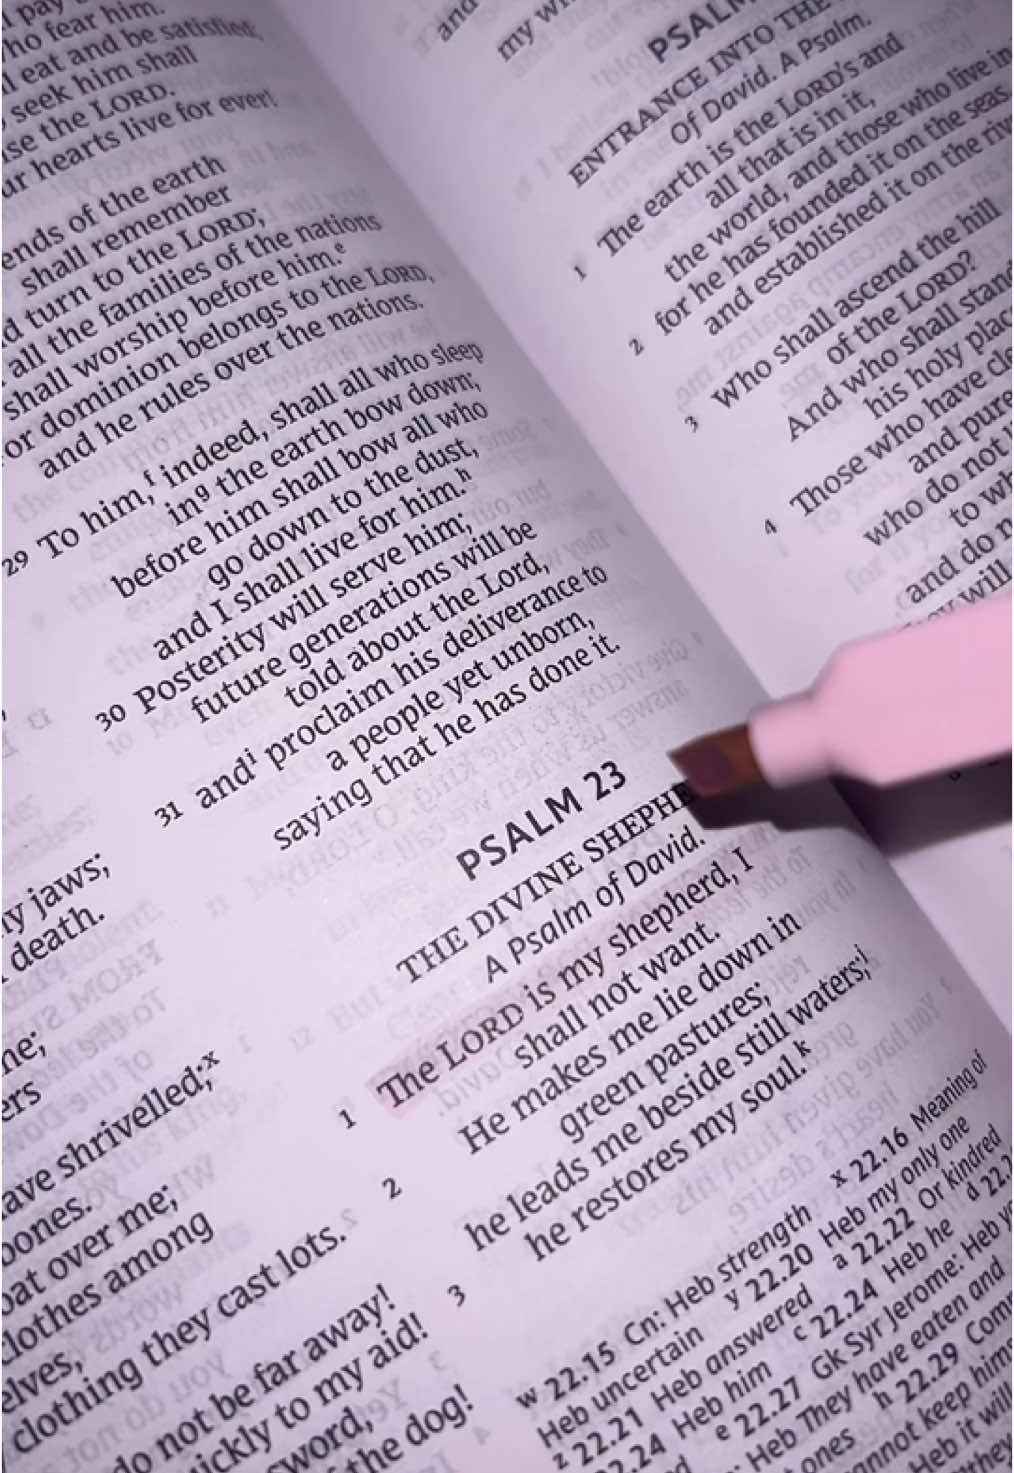 pay
ho fear him.
eat and be satisfied;
seek him shall
ise the LORD.
ur hearts live for ever!
ends of the earth
shall remember
d turn to the LORD;
all the families of the nations
shall worship before him.e
or dominion belongs to the LORD,
and he rules over the nations.
29 To him,f indeed, shall all who sleep
in g the earth bow down;
before him shall bow all who
go down to the dust,
and I shall live for him.h
30 Posterity will serve him;
future generations will be
told about the Lord,
31 and i proclaim his deliverance to
a people yet unborn,
saying that he has done it.
PSALM 23
THE DIVINE SHEPHE
A Psalm of David.
1 The LORD is my shepherd, I
shall not want.
2 He makes me lie down in
green pastures;
he leads me beside still waters;j
3 he restores my soul.k
y jaws;
death.
ne;
ers
ave shrivelled;x
bones.
oat over me;
lothes among
elves,
clothing they cast lots.
do not be far away!
uickly to my aid!
sword,
the dog!
w 22.15 Cn: Heb strength x 22.16 Meaning of
Heb uncertain y 22.20 Heb my only one
z 22.21 Heb answered a 22.22 Or kindred
22.24 Heb him c 22.24 Heb he d 22.
e 22.27 Gk Syr Jerome: Heb y
: Heb They have eaten and
ones h 22.29 Com
annot keep hims
Heb it will
they
and
my wi
PSALM
ENTRANCE INTO THE
Of David. A Psalm.
1 The earth is the LORD's and
all that is in it,
the world, and those who live in
2 for he has founded it on the seas,
and established it on the rive
3 Who shall ascend the hill
of the LORD?
And who shall stand
his holy plac
4 Those who have cle
and pure
who do not l
to wh
and do n
will